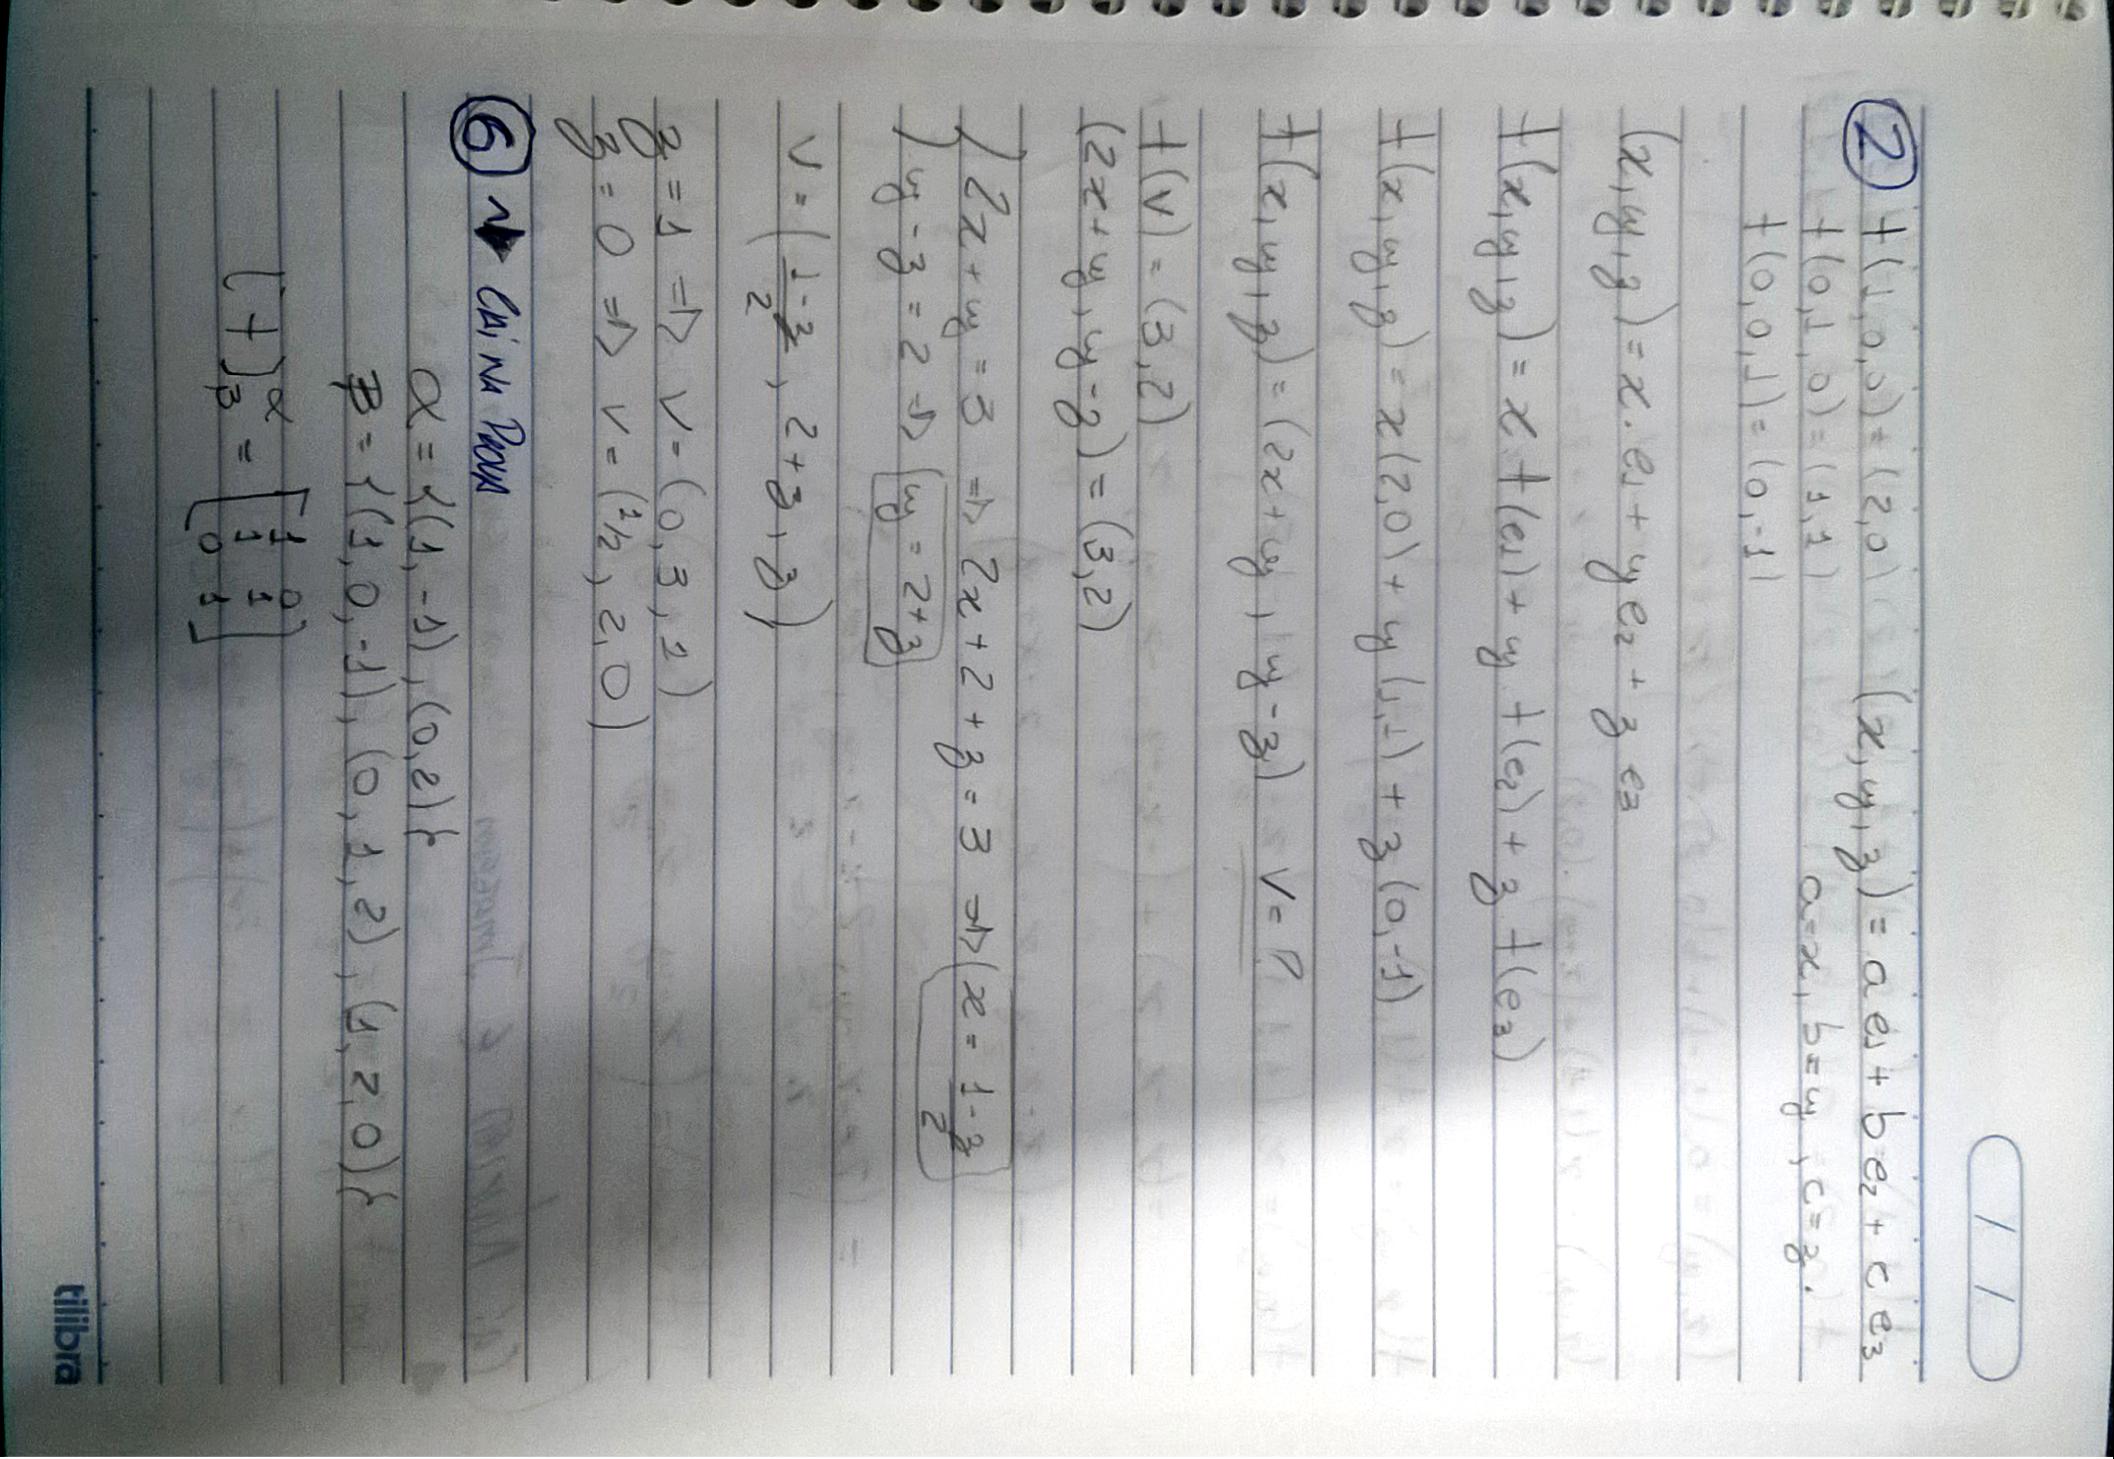 / /
2 f(1,0,0) = (2,0) (x,y,z) = a e1 + b e2 + c e3
f(0,1,0) = (1,1) a=x, b=y, c=z.
f(0,0,1) = (0,-1)
(x,y,z) = x. e1 + y e2 + z e3
f(x,y,z) = x f(e1) + y f(e2) + z f(e3)
f(x,y,z) = x(2,0) + y(1,1) + z(0,-1)
f(x,y,z) = (2x+y, y-z) V=?
f(v) = (3,2)
(2x+y, y-z) = (3,2)
{ 2x+y = 3 => 2x+2+z = 3 => x = (1-z)/2
y-z = 2 => y = 2+z
V = ((1-z)/2, 2+z, z)
z = 1 => V = (0,3,1)
z = 0 => V = (1/2, 2, 0)
6 → CAI NA PROVA
α = {(1,-1), (0,2)}
β = {(1,0,-1), (0,1,2), (1,2,0)}
[f]^α_β = [1 0
1 1
0 1]
tilibra